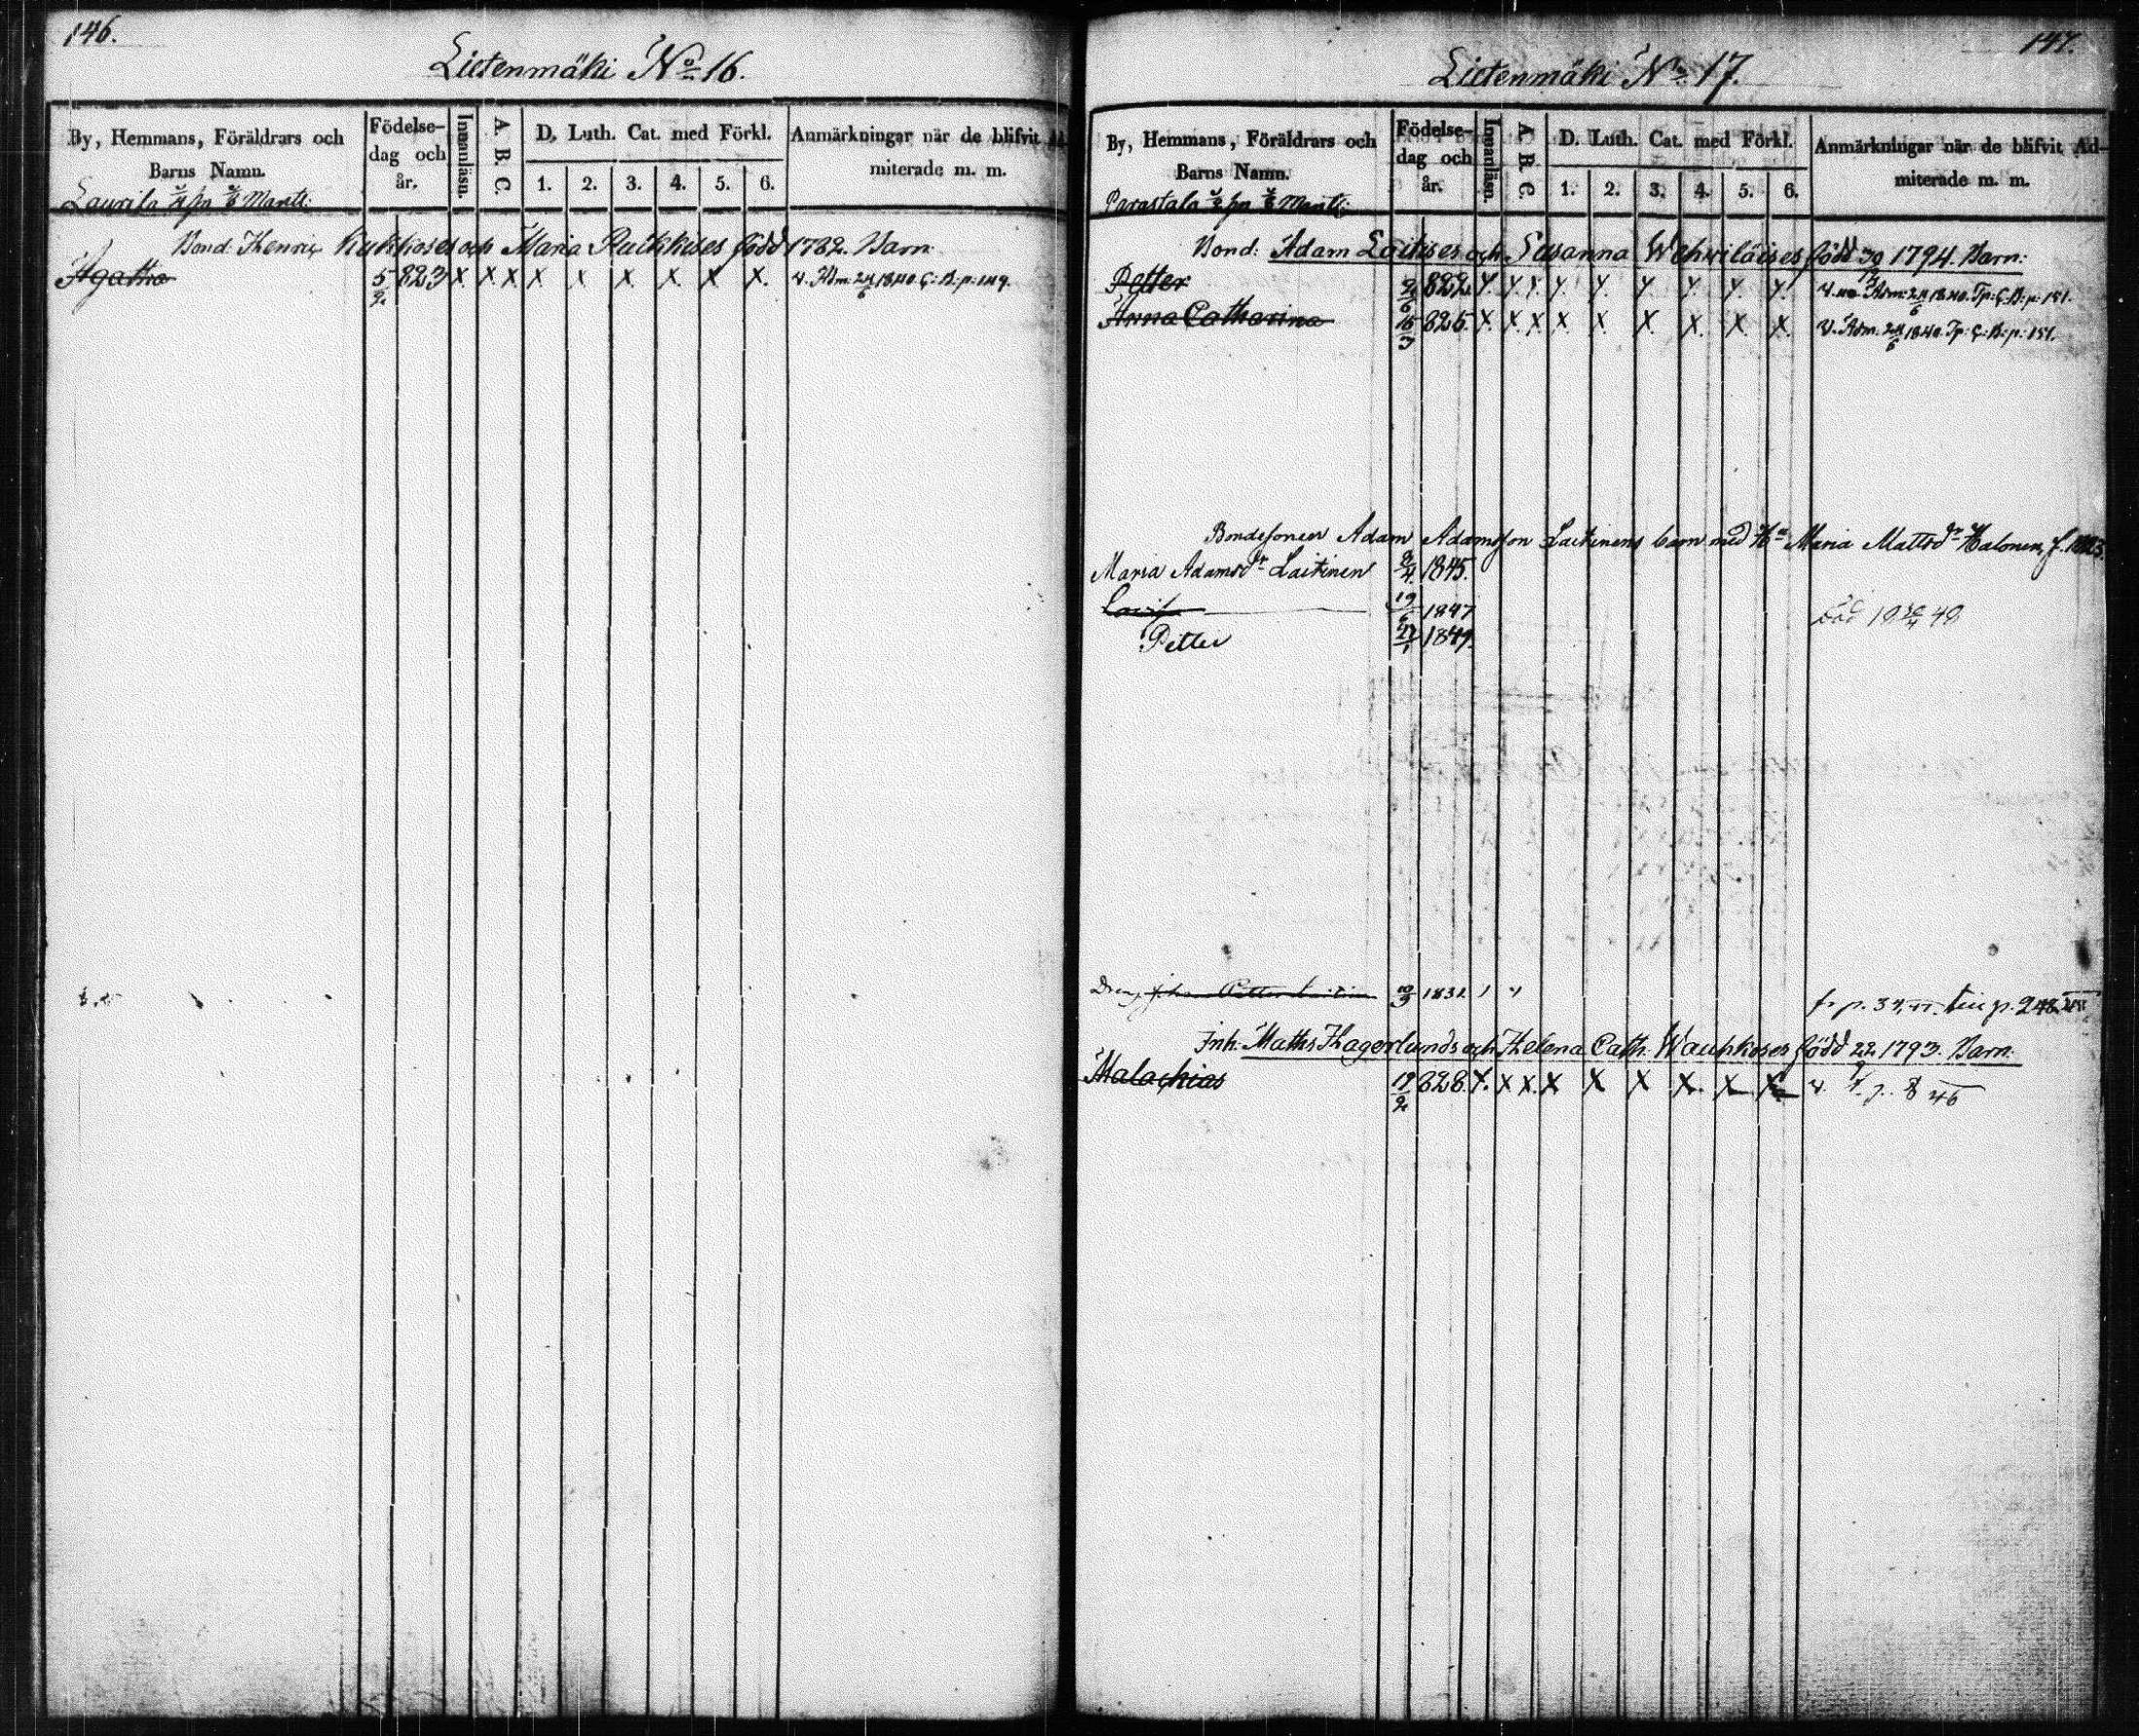 146.
Lietenmäki No 16.
By, Hemmans, Föräldrars och Barns Namn.
Födelse-dag och år.
Innanläsn.
A. B. C.
D. Luth. Cat. med Förkl.
1. 2. 3. 4. 5. 6.
Anmärkningar när de blifvit Ad-
miterade m. m.
Laurila Mantl:
Bond: Henric Kukkoses och Maria Ruikkises född 1782. Barn
Agatha 5/2 823 X X X X X X X X X. v. Adm: 24/6 1840. C: B: p: 149.
147.
Lietenmäki No 17.
By, Hemmans, Föräldrars och Barns Namn.
Födelse-dag och år.
Innanläsn.
A. B. C.
D. Luth. Cat. med Förkl.
1. 2. 3. 4. 5. 6.
Anmärkningar när de blifvit Ad-
miterade m. m.
Parastala Mantl:
Bond: Adam Laitises och Susanna Wehwiläises född 1794. Barn:
Petter 2/6 822. Y. Y. Y. Y. Y. Y. Y. Y. Y. Adm: 24/6 1840. Tp: C: B: p: 151.
Anna Catharina 15/3 825. X. X. X X. X. X. X. X. X. v. Adm. 24/6 1840. Tp: C: B: p: 151.
Bondesonen Adam Adamsson Laitinens barn med Hu Maria Mattsdr Halonen, f.
Maria Adamsdr Laitinen 1845.
Lovisa 19/6 1847
Petter 1849.
Dreng Petter Laitinen 1831
Inh: Maths Hagerlunds och Helena Cath: Wauhkoses född 22 1793. Barn:
Malachias 19/2 828. X. X X. X X X X. X X